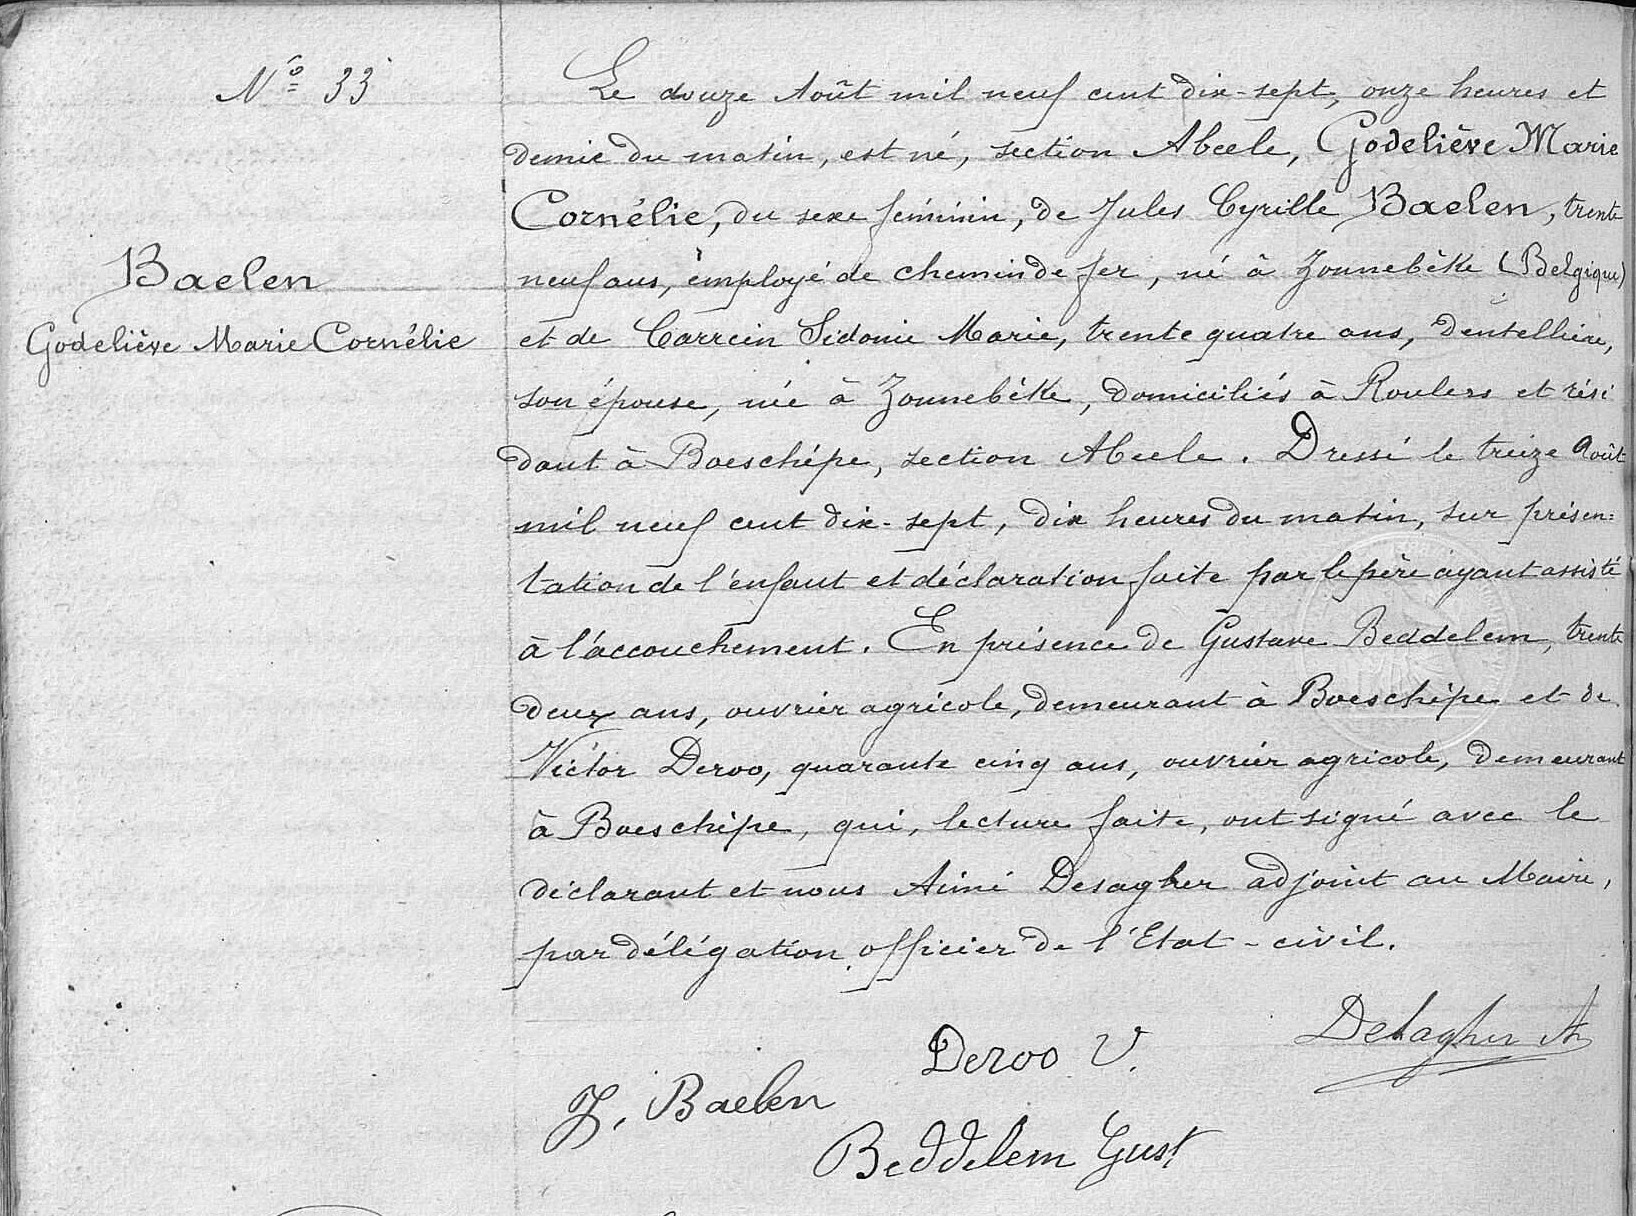 N° 33
Le douze Août mil neuf cent dix-sept, onze heures et
demie du matin, est né, section Abeele, Godeliève Marie
Cornélie, du sexe féminin, de Jules Cyrille Baelen, trente
neuf ans, employé de chemin de fer, né à Zonnebèke (Belgique)
et de Carrein Sidonie Marie, trente quatre ans, dentellière,
son épouse, née à Zonnebèke, domiciliés à Roulers et rési
dant à Boeschèpe, section Abeele. Dressé le treize Août
mil neuf cent dix-sept, dix heures du matin, sur présen=
tation de l'enfant et déclaration faite par le père ayant assisté
à l'accouchement. En présence de Gustave Beddelem, trente
deux ans, ouvrier agricole, demeurant à Boeschèpe et de
Victor Deroo, quarante cinq ans, ouvrier agricole, demeurant
à Boeschèpe, qui, lecture faite, ont signé avec le
déclarant et nous Aimé Desagher adjoint au Maire,
par délégation officier de l'Etat-civil.
Baelen
Godeliève Marie Cornélie
Desagher A
Deroo V.
J. Baelen
Beddelem Gust